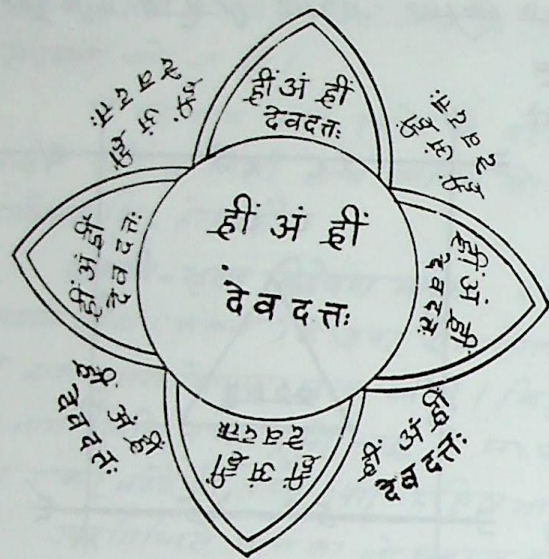 ह्रीं अं ह्रीं
देवदत्तः
ह्रीं अं ह्रीं
देवदत्तः
ह्रीं अं ह्रीं
देवदत्तः
ह्रीं अं ह्रीं
देवदत्तः
ह्रीं अं ह्रीं
देवदत्तः
ह्रीं अं ह्रीं
देवदत्तः
ह्रीं अं ह्रीं
देवदत्तः
ह्रीं अं ह्रीं
देवदत्तः
ह्रीं अं ह्रीं
देवदत्तः